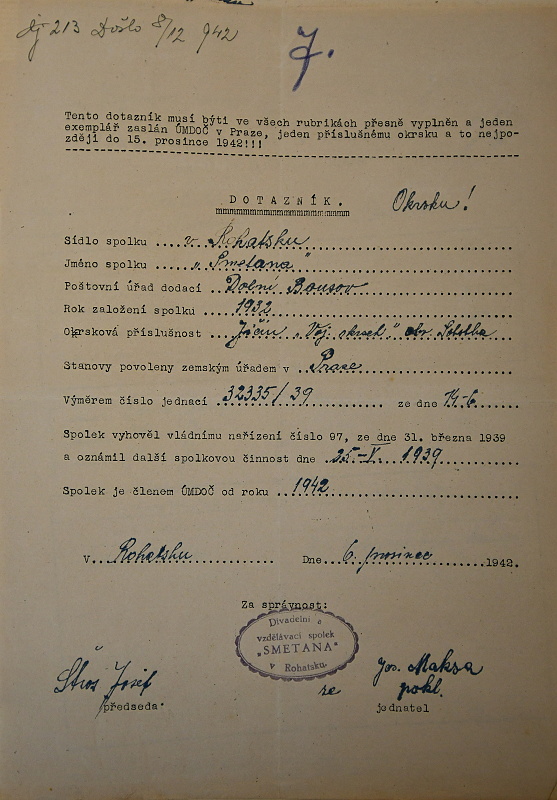 213 Došlo 8/12 942
7.
Tento dotazník musí býti ve všech rubrikách přesně vyplněn a jeden
exemplář zaslán ÚMDOČ v Praze, jeden příslušnému okrsku a to nejpo-
zději do 15. prosince 1942!!!
DOTAZNÍK.
Okrsku!
Sídlo spolku v Rohatsku
Jméno spolku „Smetana"
Poštovní úřad dodací Dolní Bousov
Rok založení spolku 1932
Okrsková příslušnost Jičín „Voj. okrsek"
Stanovy povoleny zemským úřadem v Praze
Výměrem číslo jednací 32335/39 ze dne 14-6
Spolek vyhověl vládnímu nařízení číslo 97, ze dne 31. března 1939
a oznámil další spolkovou činnost dne 25-V. 1939
Spolek je členem ÚMDOČ od roku 1942
V Rohatsku Dne 6. prosinec 1942.
Za správnost:
Divadelní a
vzdělávací spolek
„SMETANA"
v Rohatsku
Josef
Jos. Maksa
pokl.
předseda
jednatel